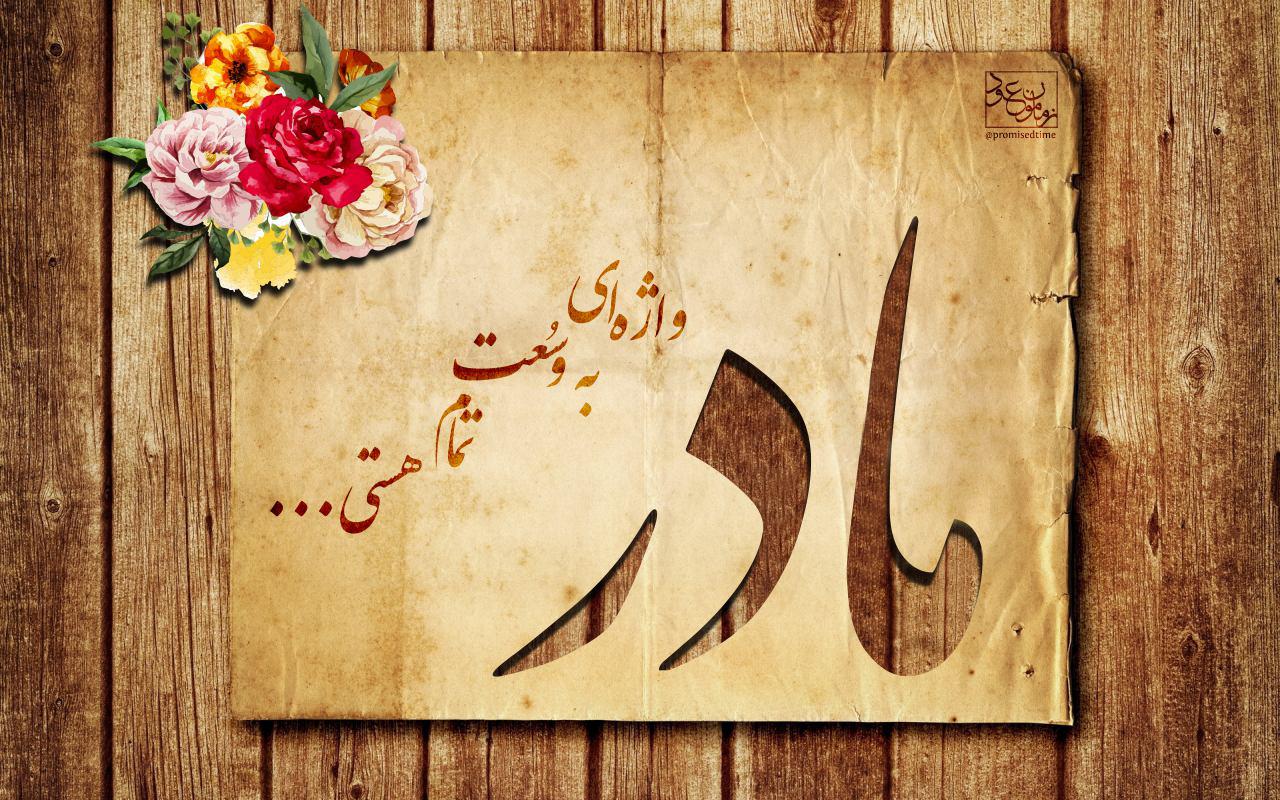 زمان موعود
@promisedtime
مادر
واژه‌ای
به وسُعت
تمام
هستی...